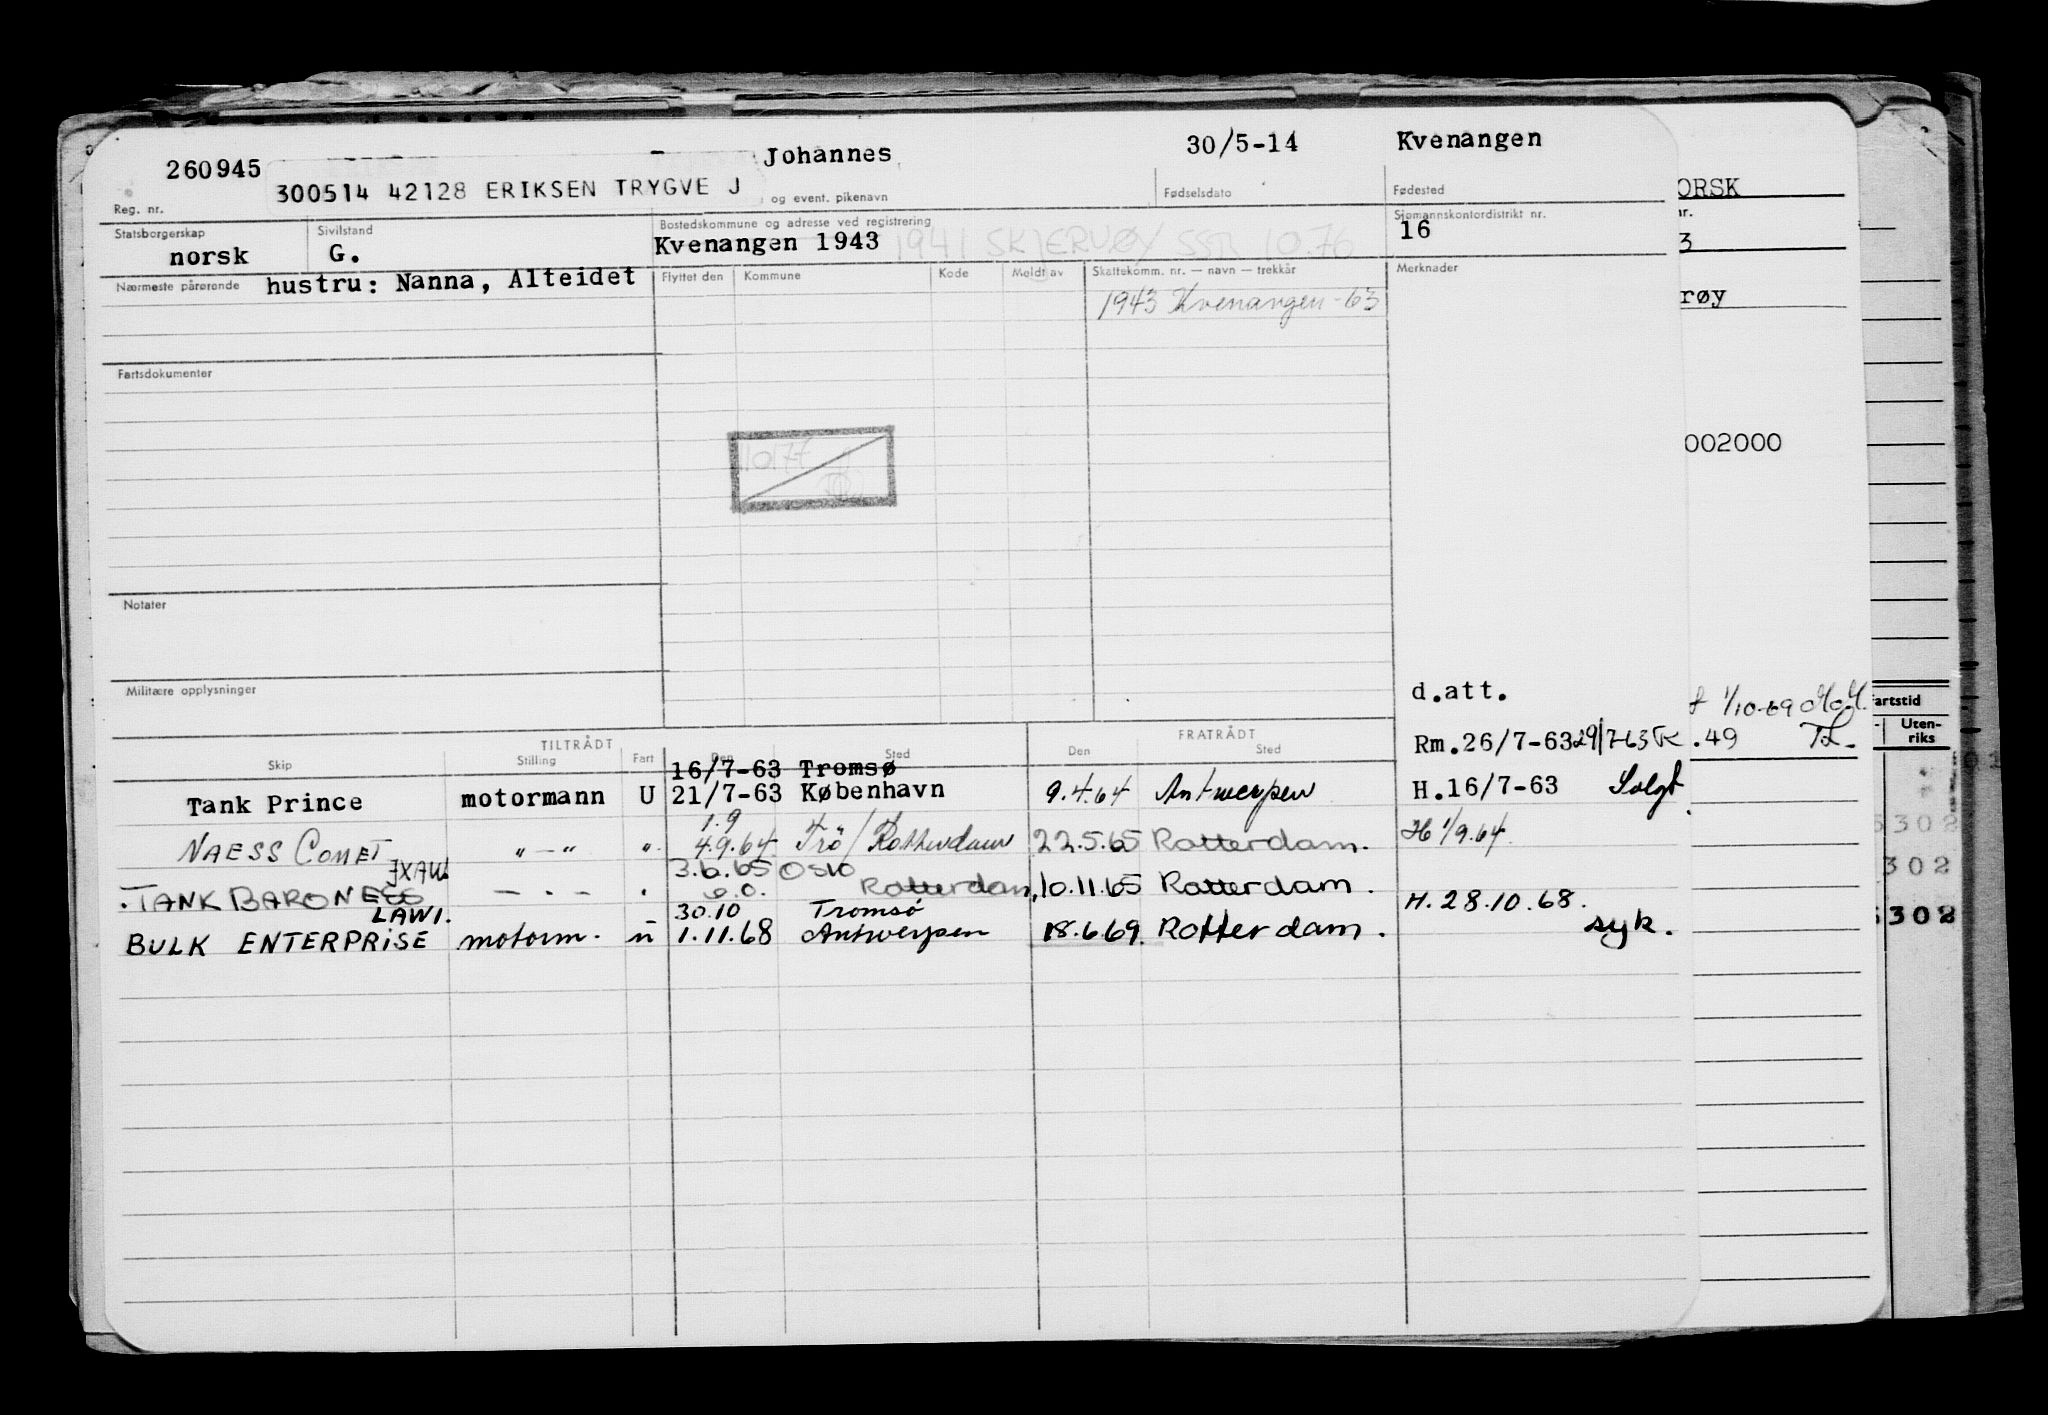 260945 Johannes 30/5-14 Kvenangen
300514 42128 ERIKSEN TRYGVE J
Reg. nr. og event. pikenavn Fødselsdato Fødested ORSK
Statsborgerskap Sivilstand Bostedskommune og adresse ved registrering Sjømannskontordistrikt nr. nr.
norsk G. Kvenangen 1943 1941 SKJERVØY SSR 10.76 16 3
Nærmeste pårørende hustru: Nanna, Alteidet Flyttet den Kommune Kode Meldt av Skattekomm. nr. — navn — trekkår Merknader
1943 Kvenangen -63 røy
Fartsdokumenter
10.77
002000
Notater
Militære opplysninger
d.att.
1/10-69 fartstid
Rm.26/7-63 29/7-63 .49 Uten-
riks
TILTRÅDT FRATRÅDT
Skip Stilling Fart Den Sted Den Sted
16/7-63 Tromsø
Tank Prince motormann U 21/7-63 København 9.4.64 Antwerpen H.16/7-63 Solgt
1.9
NAESS COMET " — " " 4.9.64 Trö/Rotterdam 22.5.65 Rotterdam. H 1/9.64 5302
JXAW 3.6.65 OSLO
TANK BARONESS — . — . e.o. Rotterdam, 10.11.65 Rotterdam. 302
LAWI. 30.10 Tromsø H. 28.10.68.
BULK ENTERPRISE motorm. u 1.11.68 Antwerpen 18.6.69. Rotterdam. syk. 302